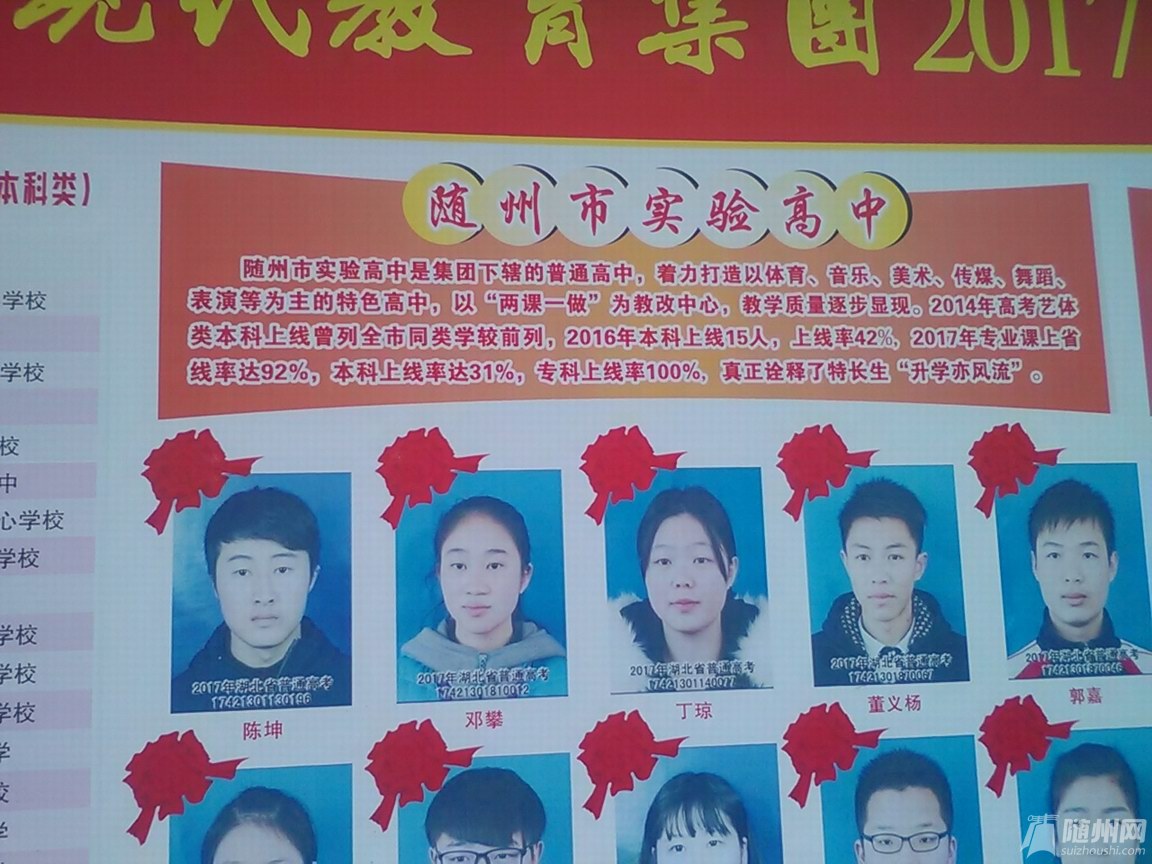 现代教育集团2017
本科类）
学校
学校
校
中
心学校
学校
学校
学校
学校
学
校
学
随州市实验高中
随州市实验高中是集团下辖的普通高中，着力打造以体育、音乐、美术、传媒、舞蹈、
表演等为主的特色高中，以“两课一做”为教改中心，教学质量逐步显现。2014年高考艺体
类本科上线曾列全市同类学较前列，2016年本科上线15人，上线率42%，2017年专业课上省
线率达92%，本科上线率达31%，专科上线率100%，真正诠释了特长生“升学亦风流”。
2017年湖北省普通高考
17421301130196
陈坤
2017年湖北省普通高考
17421301810012
邓攀
2017年湖北省普通高考
17421301140077
丁琼
2017年湖北省普通高考
董义杨
2017年湖北省普通高考
郭嘉
随州网
suizhoushi.com